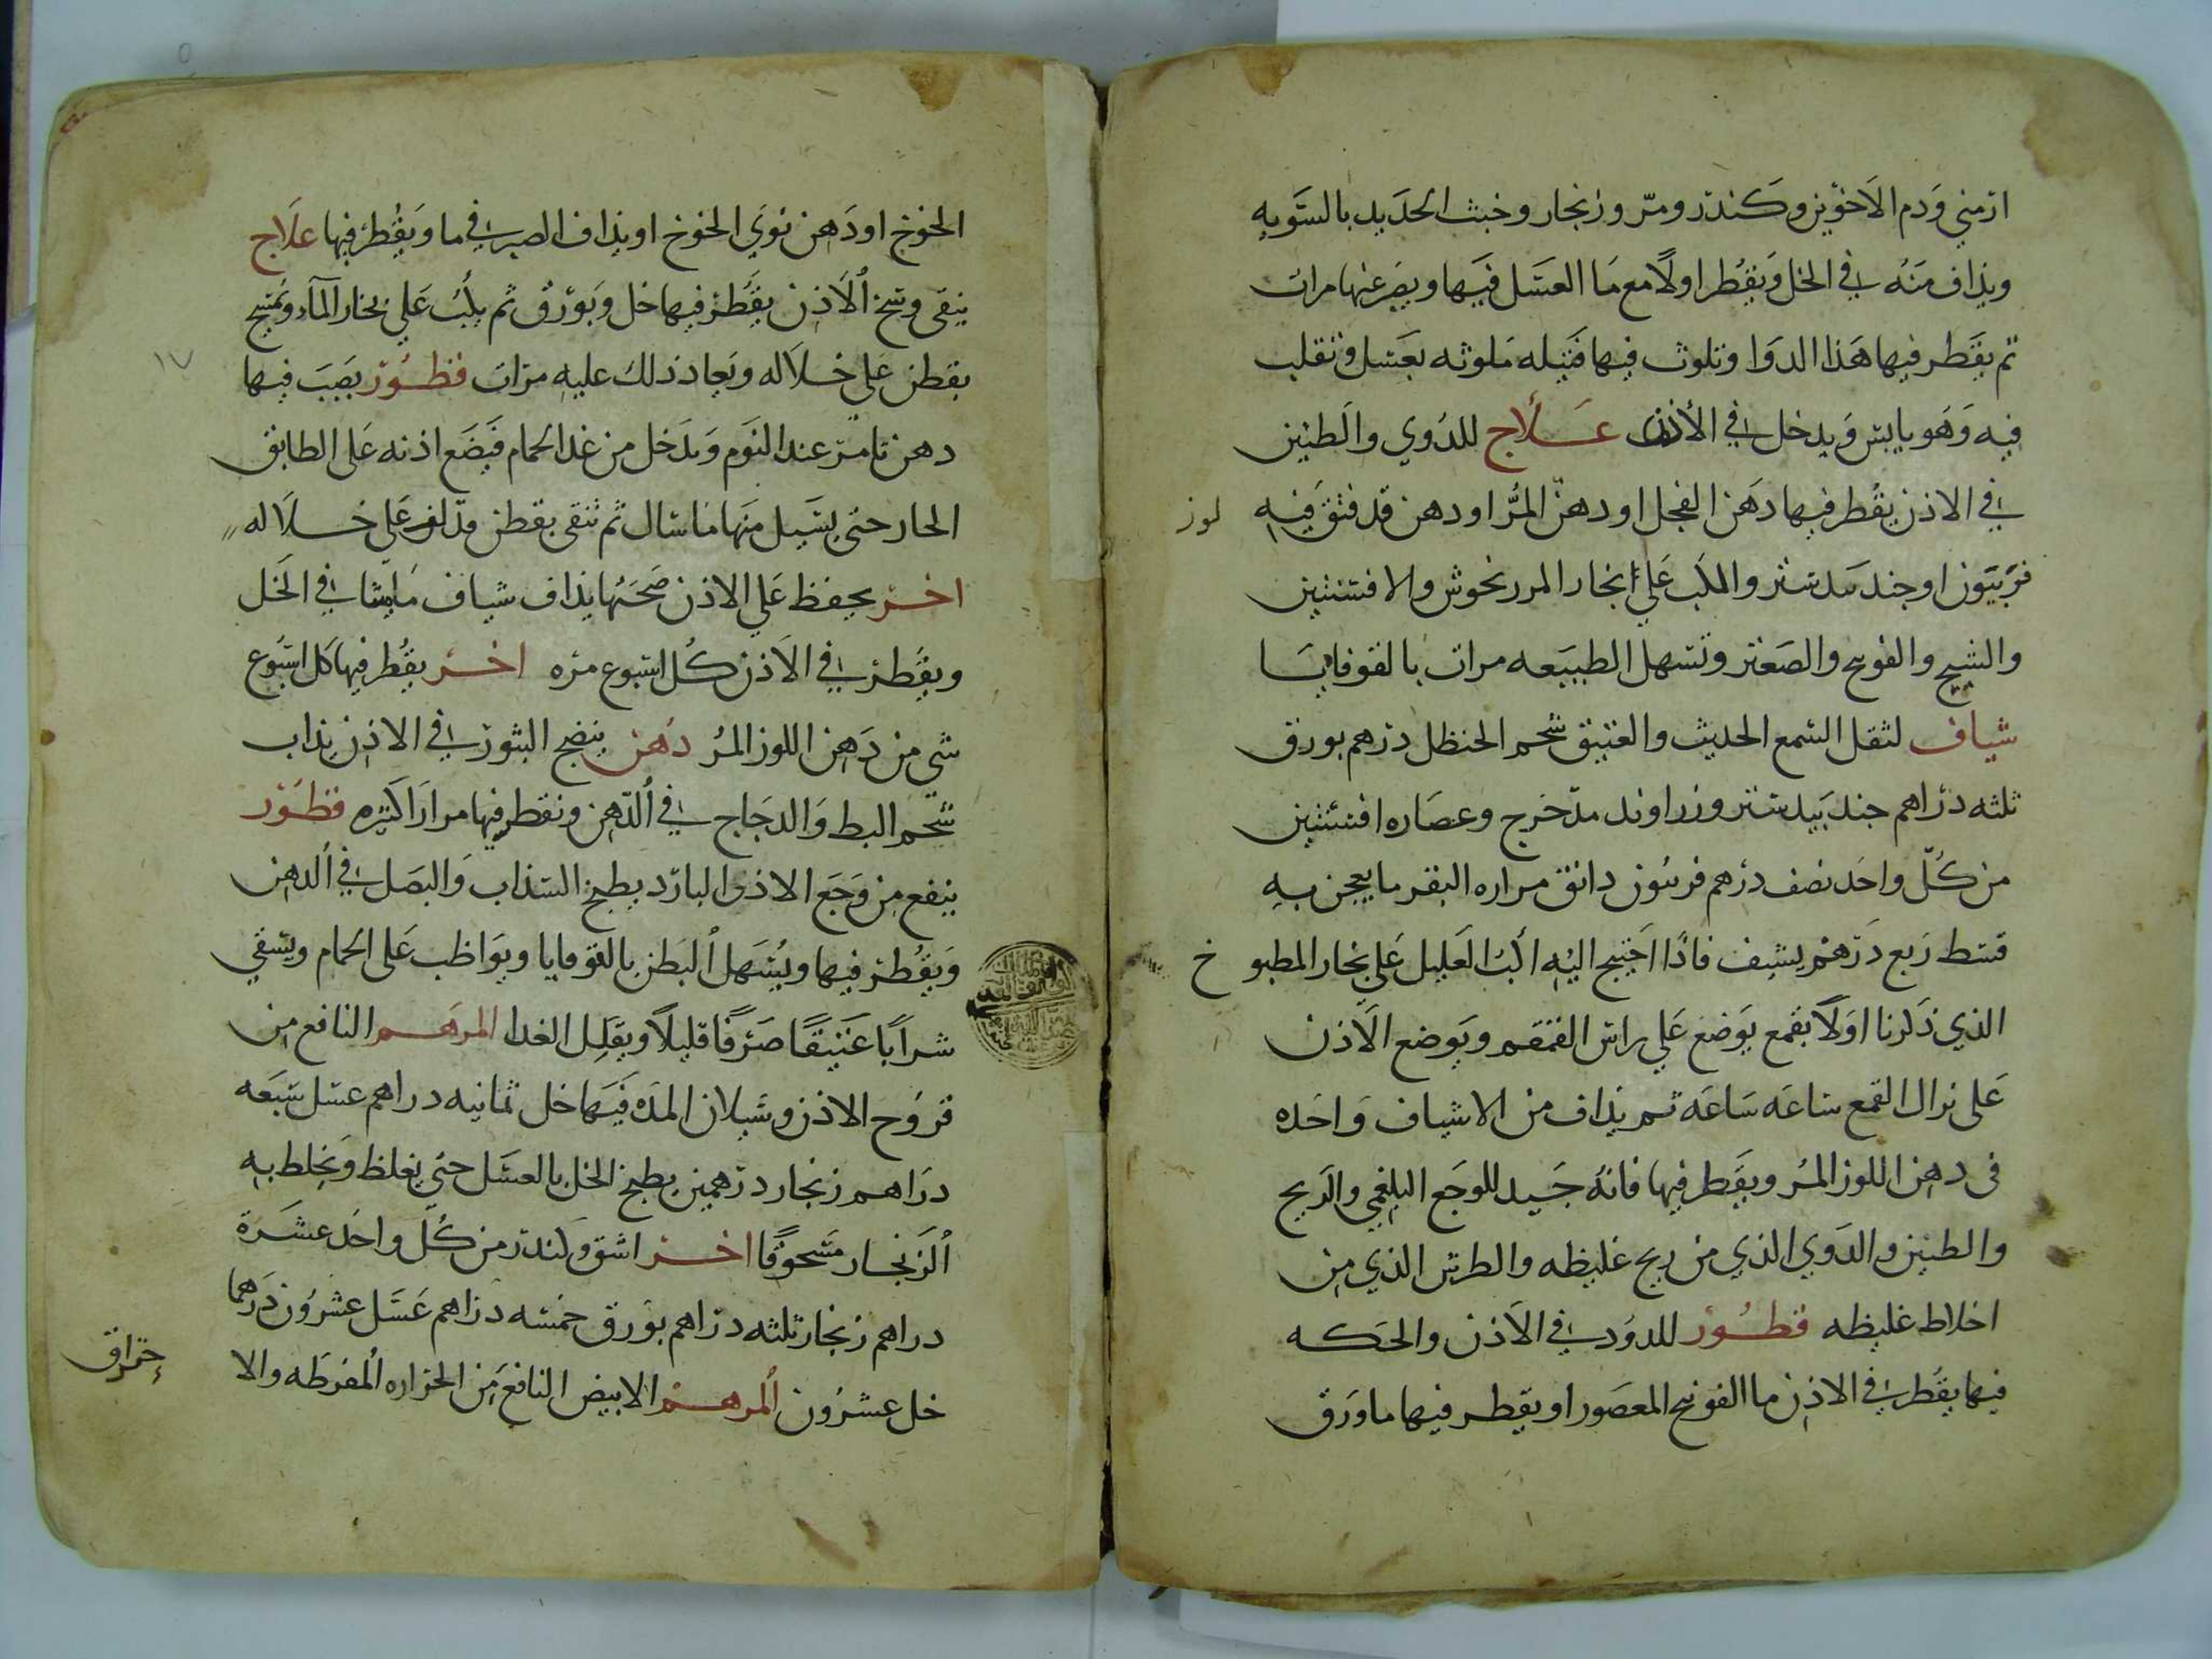 ارمني ودم الاخوين وكندر ومر وزنجار وخبث الحديد بالسويه
ويذاف منه في الخل ويقطر اولا مع ما العسل فيها ويصير عنها مرات
ثم يقطر فيها هذا الدوا وتلوث فيها فتيله ملوثه بعسل وتقلب
فيه وهو يابس ويدخل في الأذن علاج للدوي والطنين
في الاذن يقطر فيها دهن الفجل او دهن المر او دهن قد فتق فيه
لوز
فربيون او جندبيدستر والكب علي بخار المرزنجوش والافسنتين
والشيح والفوتنج والصعتر وتسهل الطبيعه مرات بالقوقايا
شياف لثقل السمع الحديث والعتيق شحم الحنظل درهم بورق
ثلثه دراهم جندبيدستر وزراوند مدحرج وعصاره افسنتين
من كل واحد نصف درهم فربيون دانق مراره البقر ما يعجن به
قسط ربع درهم يشيف فاذا احتيج اليه اكب العليل علي بخار المطبوخ
الذي ذكرنا اولا بقمع يوضع علي راس القمقم ويوضع الاذن
على نزال القمع ساعه ساعه ثم يذاف من الاشياف واحده
في دهن اللوز المر ويقطر فيها فانه جيد للوجع البلغمي والريح
والطنين والدوي الذي من ريح غليظه والطرش الذي من
اخلاط غليظه قطور للدود في الاذن والحكه
فيها يقطر في الاذن ما الفوتنج المعصور او يقطر فيها ما ورق
الخوخ او دهن نوي الخوخ او يذاف الصبر في ما ويقطر فيها علاج
ينقى وسخ الأذن يقطر فيها خل وبورق ثم يكب علي بخار المآء وتمسح
بقطن علي خلاله ويعاد ذلك عليه مرات قطور يصب فيها
١٧
دهن تامر عند النوم ويدخل من غد الحمام فيضع اذنه على الطابق
الحار حتى يسيل منها ما سال ثم تنقى بقطن قد لف على خلاله
اخر يحفظ علي الاذن صحتها يذاف شياف ماميثا في الخل
ويقطر في الاذن كل اسبوع مره اخر يقطر فيها كل اسبوع
شي من دهن اللوز المر دهن ينضج البثور في الاذن يذاب
شحم البط والدجاج في الدهن ونقطر فيها مرارا كثيره قطور
ينفع من وجع الاذن البارد يطبخ السذاب والبصل في الدهن
ويقطر فيها ويسهل البطن بالقوقايا ويواظب على الحمام ويسقي
شرابا عتيقا صرفا قليلا ويقلل الغدا المرهم النافع من
قروح الاذن وسيلان المده فيها خل ثمانيه دراهم عسل سبعه
دراهم زنجار درهمين يطبخ الخل بالعسل حتى يغلظ ويخلط به
الزنجار مسحوقا اخر اشق وكندر من كل واحد عشرة
دراهم زنجار ثلثه دراهم بورق خمسه دراهم عسل عشرون درهما
خل عشرون المرهم الابيض النافع من الحراره المفرطه والا
حتراق